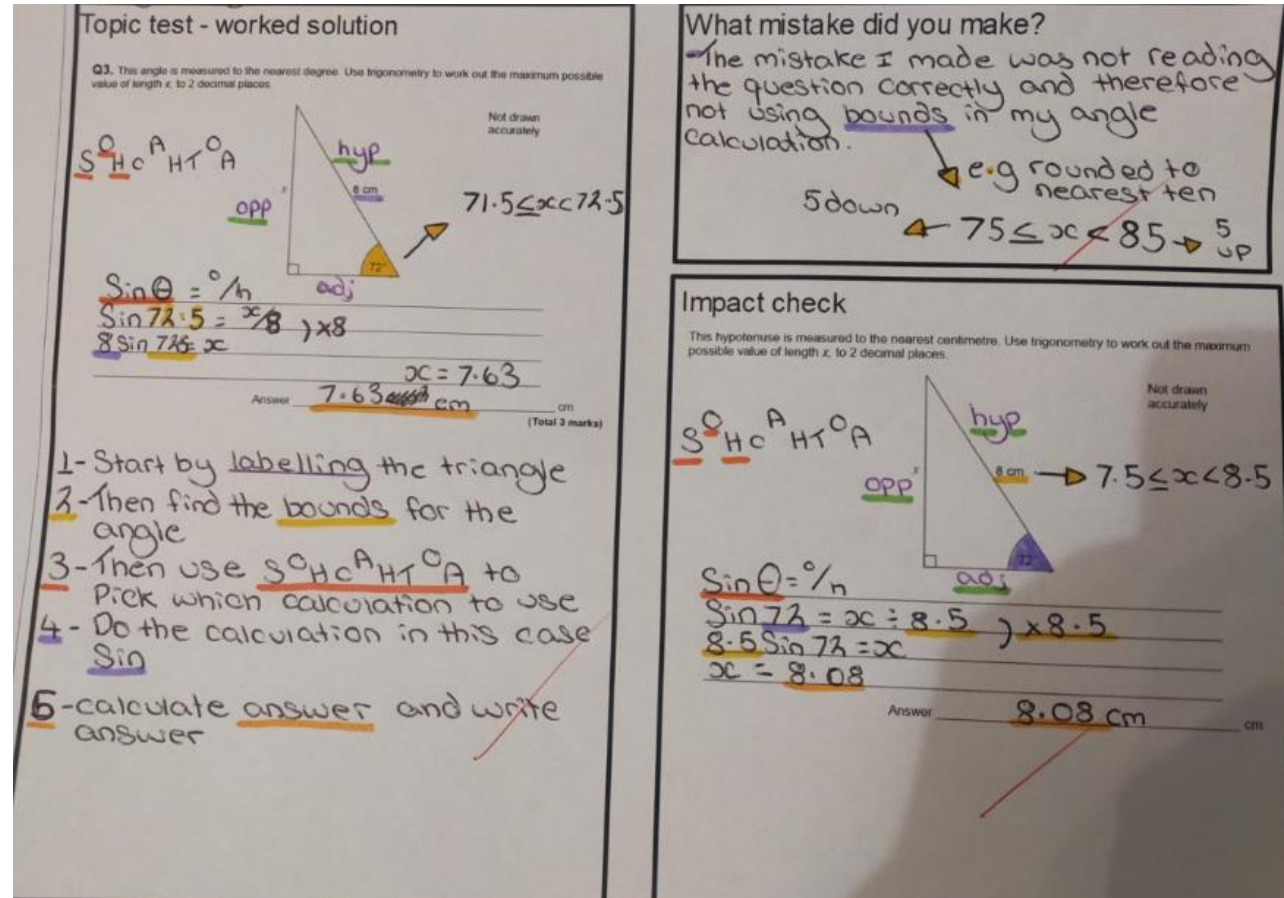 Topic test - worked solution
Q3. This angle is measured to the nearest degree. Use trigonometry to work out the maximum possible
value of length x, to 2 decimal places.
Not drawn
accurately
SOHCAHTOA
hyp
8 cm
x
opp
71.5≤x<72.5
72°
adj
Sinθ = O/h
Sin72.5 = x/8 )×8
8Sin 72.5 = x
x = 7.63
Answer 7.63 cm cm
(Total 3 marks)
1- Start by labelling the triangle
2- Then find the bounds for the
angle
3- Then use SOHCAHTOA to
pick which calculation to use
4- Do the calculation in this case
Sin
5- calculate answer and write
answer
What mistake did you make?
-The mistake I made was not reading
the question correctly and therefore
not using bounds in my angle
calculation.
e.g rounded to
nearest ten
5down 75≤x<85 5
up
Impact check
This hypotenuse is measured to the nearest centimetre. Use trigonometry to work out the maximum
possible value of length x, to 2 decimal places.
Not drawn
accurately
SOHCAHTOA
hyp
8 cm 7.5≤x<8.5
opp
x
72
adj
Sinθ = O/h
Sin72 = x ÷ 8.5 )×8.5
8.5Sin 72 = x
x = 8.08
Answer 8.08 cm cm